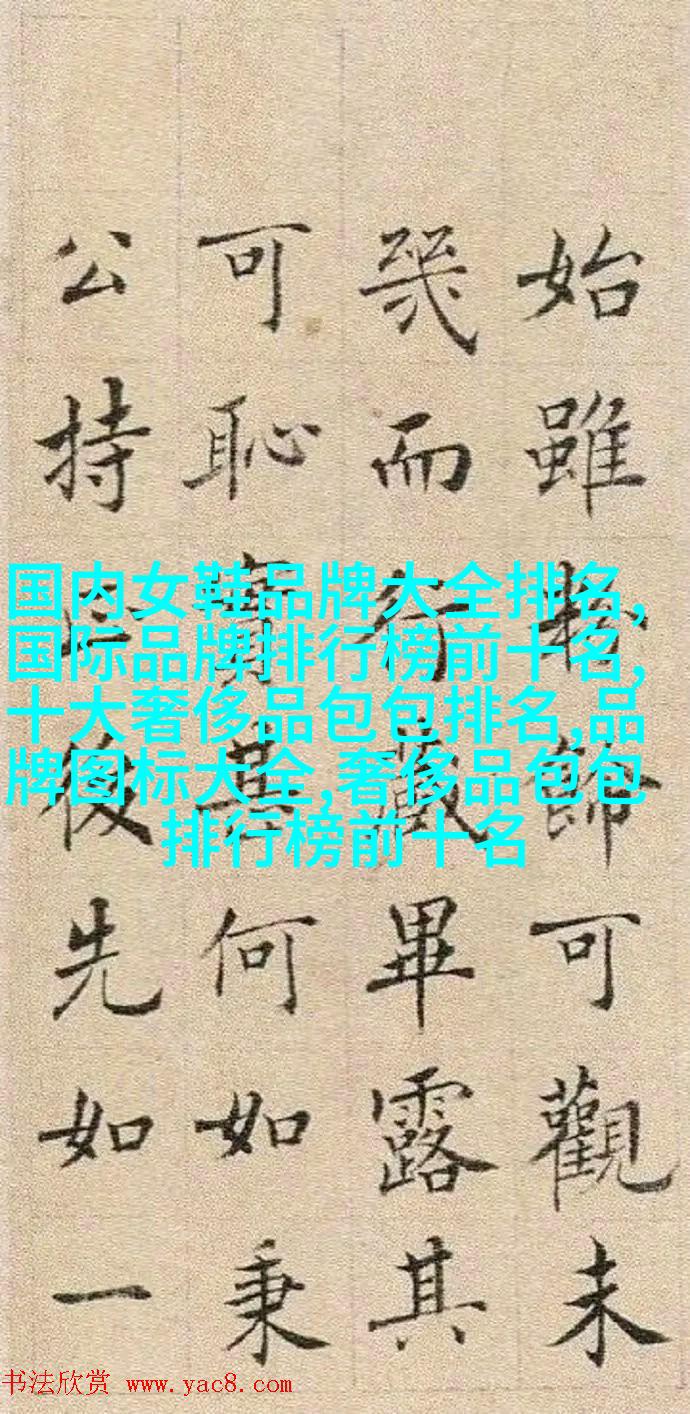 始雖粉飾可觀未
幾而行藏畢露其
可恥何如秉
公持後先如一
国内女鞋品牌大全排名,
国际品牌排行榜前十名,
十大奢侈品包包排名,品
牌图标大全,奢侈品包包
排行榜前十名
书法欣赏 www.yac8.com